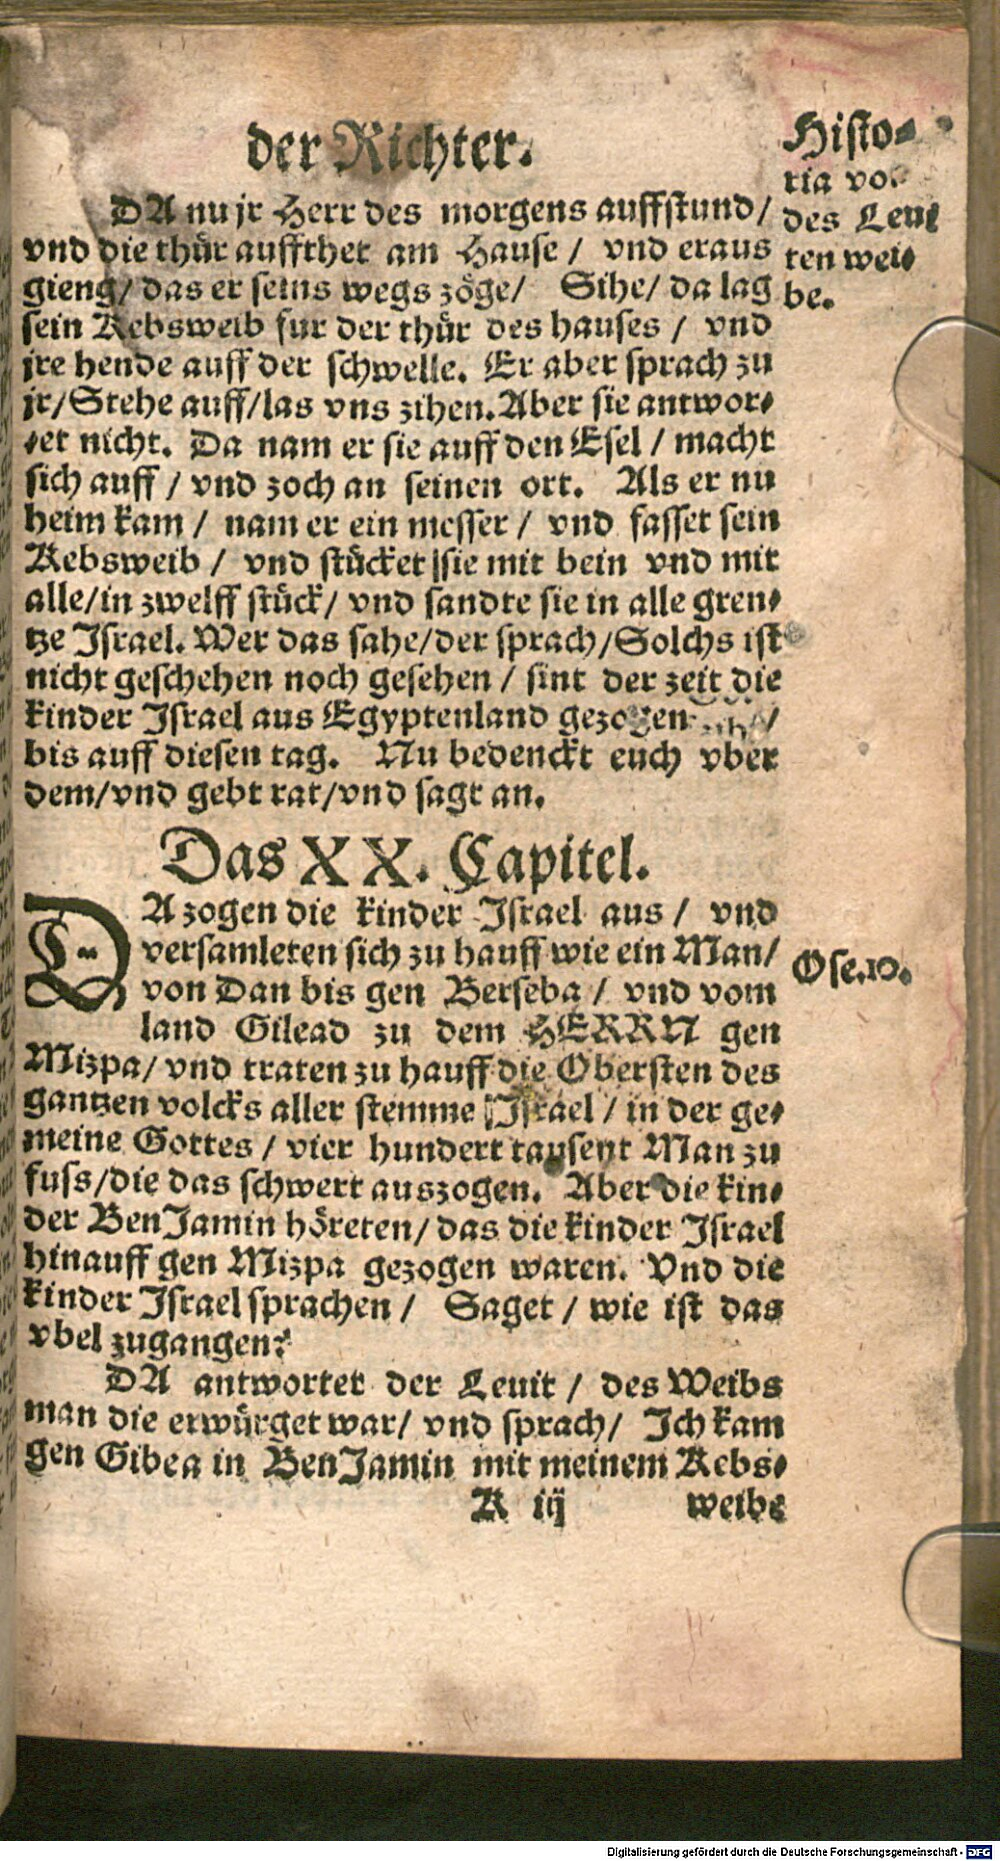 der Richter.
Histo⸗
ria vo
des Leui
ten wei⸗
be.
DA nu jr Herr des morgens auffstund/
vnd die thür auffthet am Hause / vnd eraus
gieng/ das er seins wegs zöge/ Sihe/ da lag
sein Kebsweib fur der thür des hauses / vnd
jre hende auff der schwelle. Er aber sprach zu
jr/Stehe auff/las vns zihen.Aber sie antwor⸗
et nicht. Da nam er sie auff den Esel / macht
sich auff / vnd zoch an seinen ort. Als er nu
heim kam / nam er ein messer / vnd fasset sein
Kebsweib / vnd stücket sie mit bein vnd mit
alle/in zwelff stück/ vnd sandte sie in alle gren⸗
tze Israel. Wer das sahe/der sprach/Solchs ist
nicht geschehen noch gesehen / sint der zeit die
kinder Israel aus Egyptenland gezogen /
bis auff diesen tag. Nu bedenckt euch vber
dem/vnd gebt rat/vnd sagt an.
Das XX. Capitel.
DA zogen die kinder Israel aus / vnd
versamleten sich zu hauff wie ein Man/
von Dan bis gen Berseba / vnd vom
land Gilead zu dem HERRN gen
Mizpa/ vnd traten zu hauff die Obersten des
gantzen volcks aller stemme Israel / in der ge⸗
meine Gottes / vier hundert tausent Man zu
fuss/die das schwert auszogen. Aber die kin⸗
der BenJamin höreten/ das die kinder Israel
hinauff gen Mizpa gezogen waren. Vnd die
kinder Israel sprachen / Saget / wie ist das
vbel zugangen?
Ose.10.
DA antwortet der Leuit / des Weibs
man die erwürget war/ vnd sprach/ Ich kam
gen Gibea in BenJamin mit meinem Kebs⸗
K iij weibe
Digitalisierung gefördert durch die Deutsche Forschungsgemeinschaft - DFG